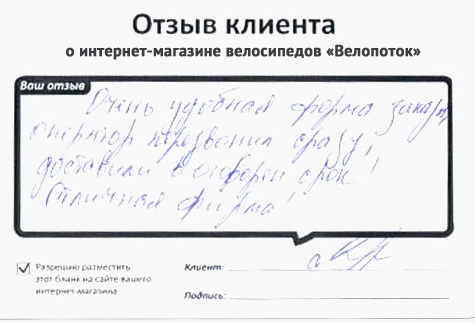 Отзыв клиента
о интернет-магазине велосипедов «Велопоток»
Ваш отзыв
Очень удобная форма заказа,
оператор перезвонил сразу,
доставили в оговорен срок!
Отличная фирма!
Разрешаю разместить
этот бланк на сайте вашего
интернет-магазина
Клиент:
Подпись: